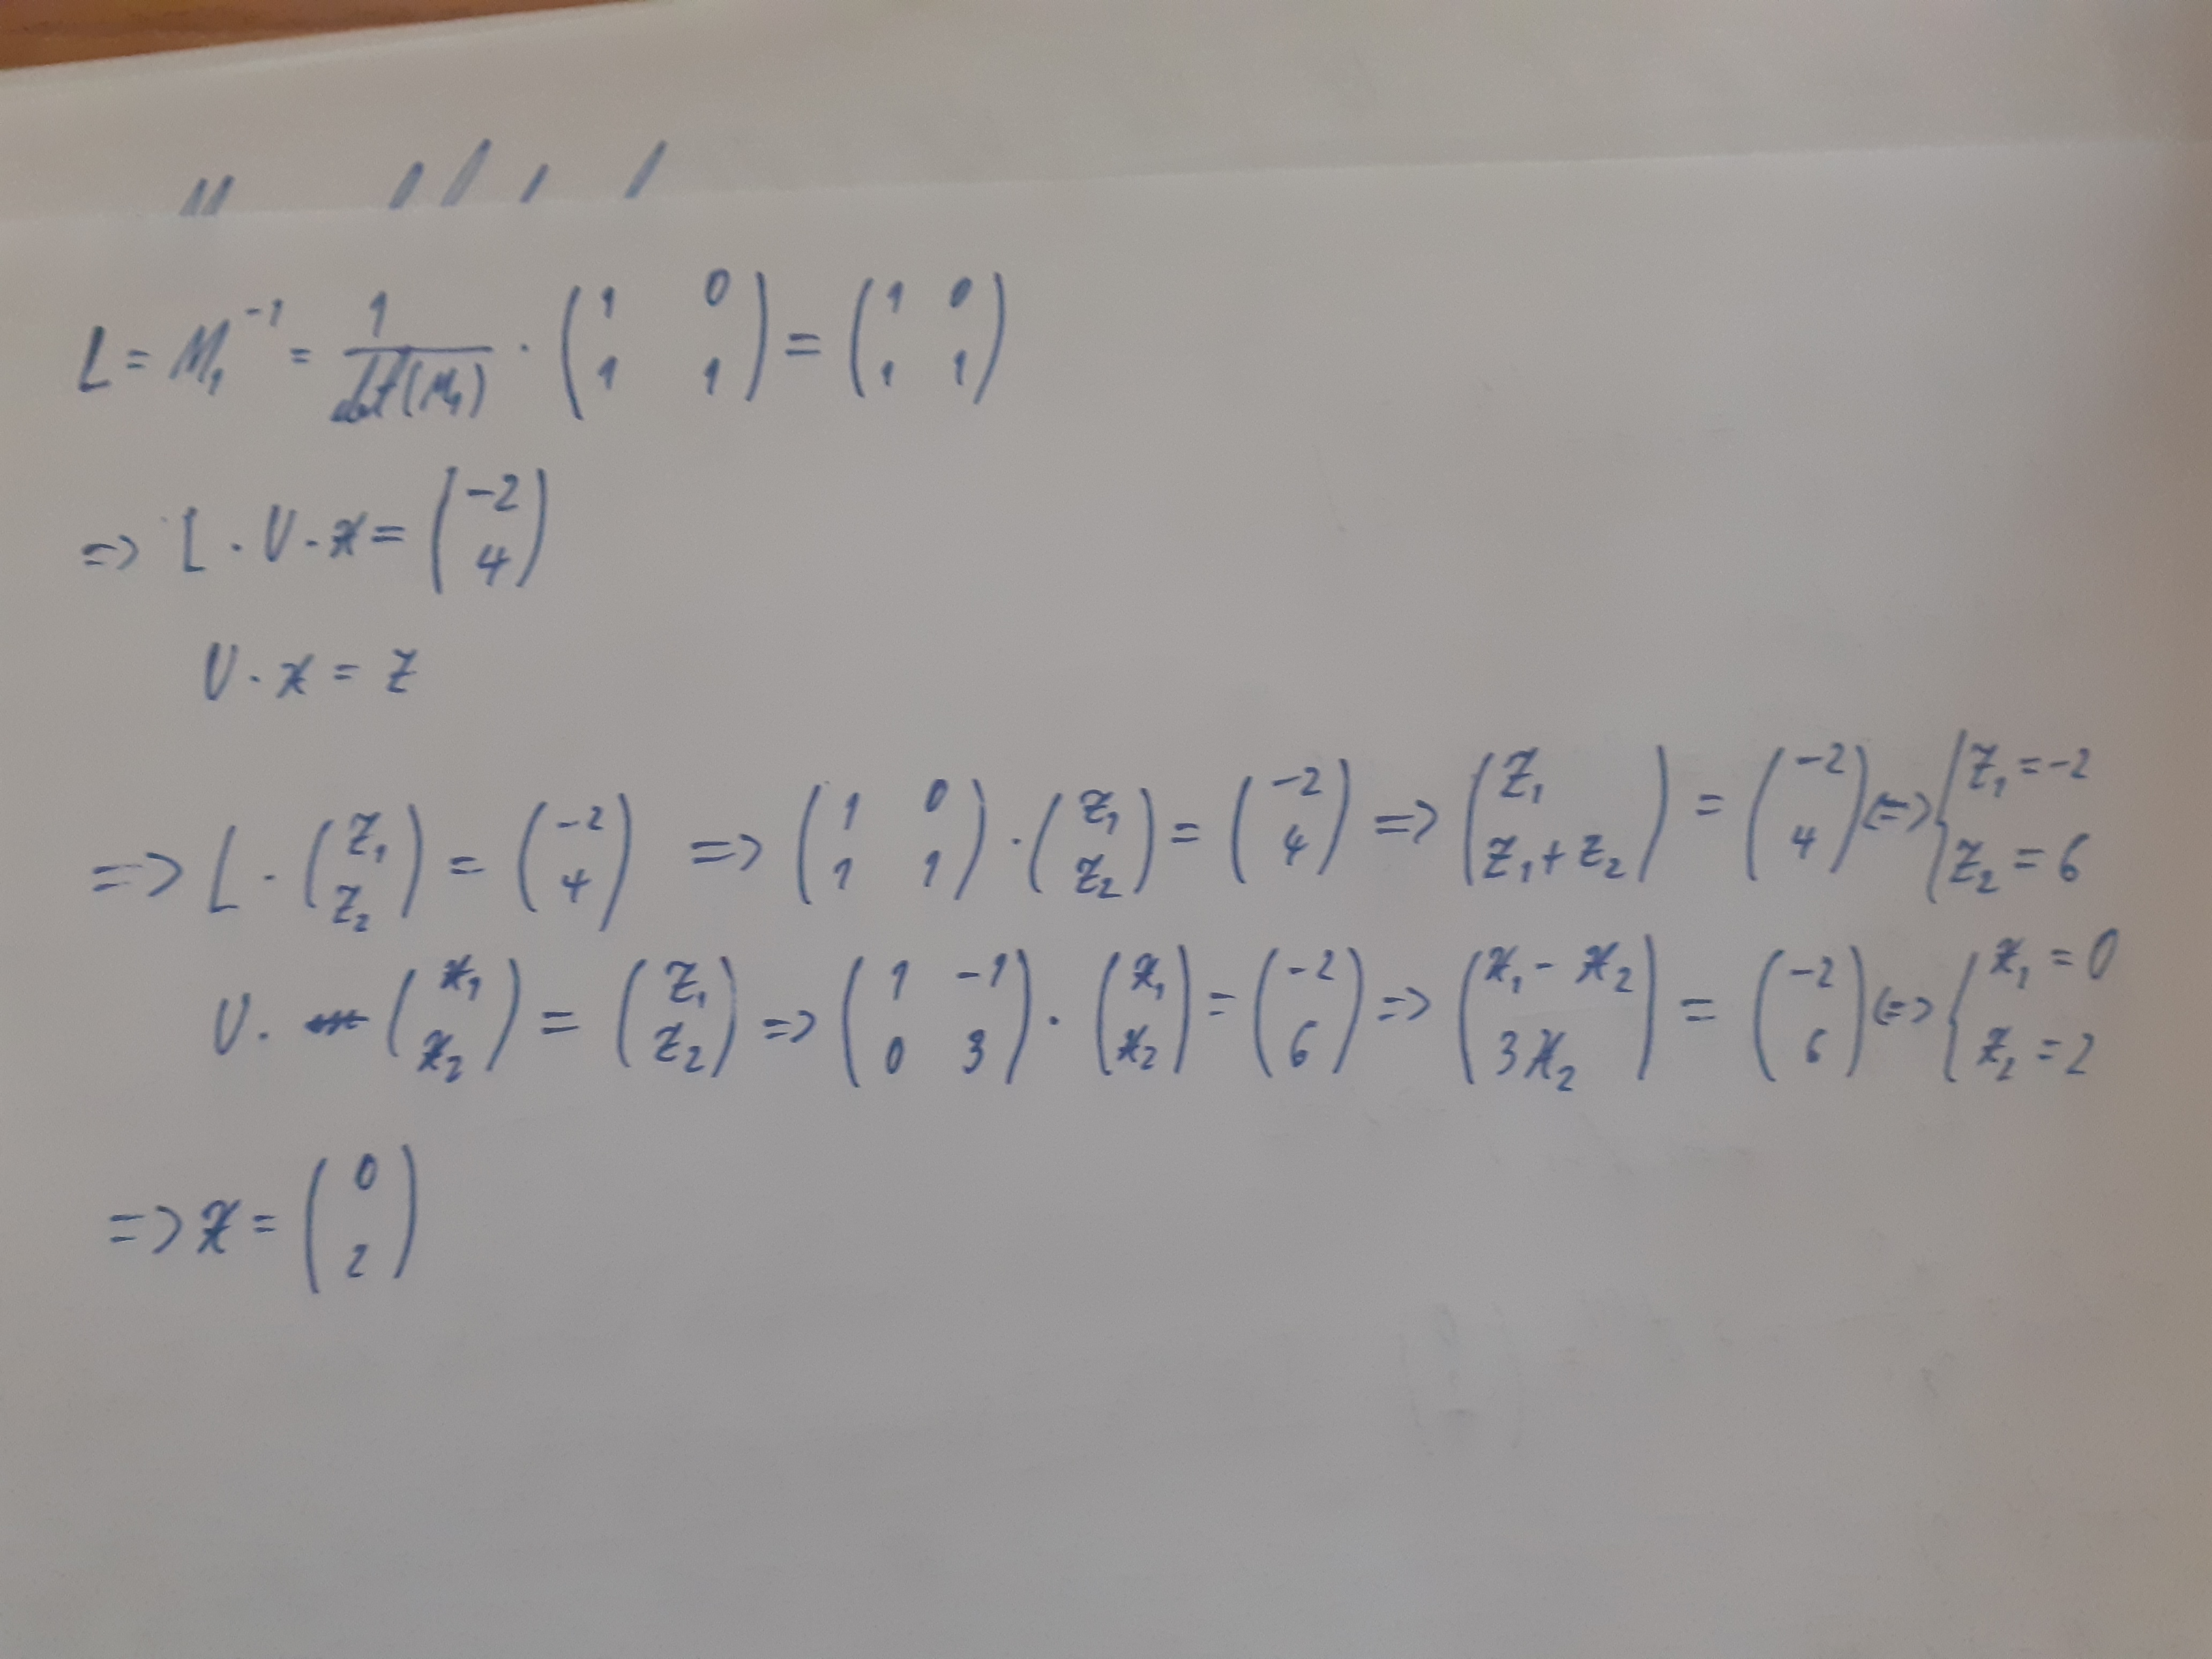 L = M₁⁻¹ = 1/det(M₁) · (1 0; 1 1) = (1 0; 1 1)
=> L · U · x = (-2; 4)
U · x = z
=> L · (z₁; z₂) = (-2; 4) => (1 0; 1 1) · (z₁; z₂) = (-2; 4) => (z₁; z₁ + z₂) = (-2; 4) <=> { z₁ = -2; z₂ = 6
U · (x₁; x₂) = (z₁; z₂) => (1 -1; 0 3) · (x₁; x₂) = (-2; 6) => (x₁ - x₂; 3x₂) = (-2; 6) <=> { x₁ = 0; x₂ = 2
=> x = (0; 2)